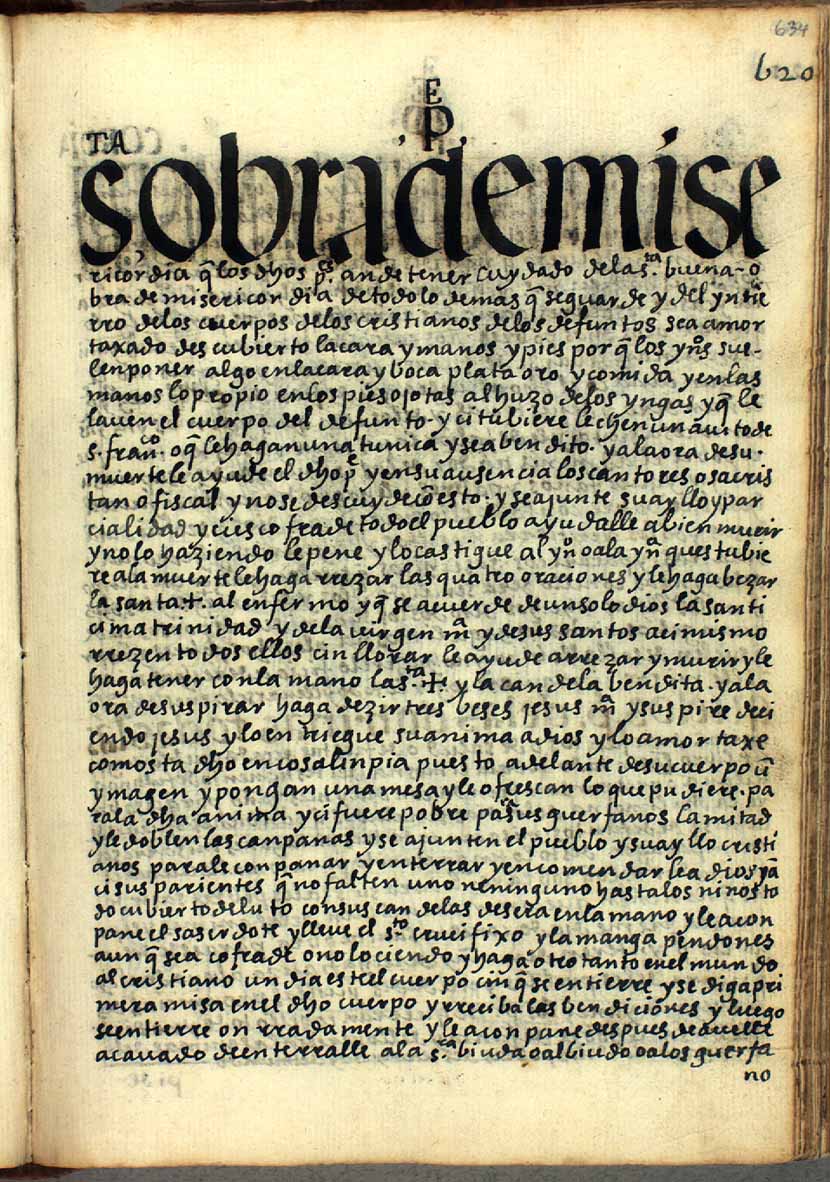 634
620
E
P
TA
sobrademise
ricordia q̃ los dhos ps. an de tener cuydado de la s.ta buena o
bra de misericordia de todo lo demas q̃ se guarde y del yntie
rro de los cuerpos de los cristianos de los defuntos sea amor
taxado descubierto la cara y manos y pies por q̃ los yns̃ sue-
len poner algo en la cara y boca plata oro y comida y en las
manos lo propio en los pies ojotas al huzo de los yngas y q̃ le
laven el cuerpo del defunto. y ci tubiere le chen un auito de
s. fran.co o q̃ le hagan una tunica y sea bendito. y a la ora de su.
muerte le ayude el dho pe y en su ausencia los cantores o sacris
tan o fiscal y no se descuyde cõ esto. y se ajunte su ayllo y par
cialidad y ci es cofrade todo el pueblo ayudalle a bien murir
y no lo haziendo le pene y lo castigue al yn̊ o a la ynª ques tubie
re a la muerte le haga rrezar las quatro oraciones y le haga bezar
la santa +. al enfermo y q̃ se acuerde de un solo dios la santi
cima trinidad y de la uirgen mª y de sus santos aci mismo
rrezen todos ellos cin llorar le ayude a rrezar y murir y le
haga tener con la mano la s.ta + y la candela bendita. y a la
ora de suspirar haga dezir tres beses jesus mª y suspire deci
endo jesus y lo entriegue su anima a dios y lo amortaxe
como sta dho en cosa linpia puesto adelante de su cuerpo ũ
ymagen y pongan una mesa y le ofrescan lo que pudiere. pa
ra la dha anima y ci fuere pobre pa sus guerfanos la mitad
y le doblen las canpanas y se ajunten el pueblo y su ayllo cristi
anos para le conpañar y enterrar y encomendarle a dios ya
ci sus parientes q̃ no falten uno ne ninguno hasta los ninos to
do cubierto de luto con sus candelas de sera en la mano y le acon
pane el saserdote y lleve el s.to crucifixo y la manga pendones
aun q̃ sea cofrade o no lo ciendo y haga otro tanto en el mundo
al cristiano un dia este el cuerpo cin q̃ se entierre y se diga pri
mera misa en el dho cuerpo y rreciba las bendiciones y luego
se entierre onrradamente y le aconpane despues de auelle
acauado de enterralle a la s.ra biuda o al biudo o a los guerfa
no